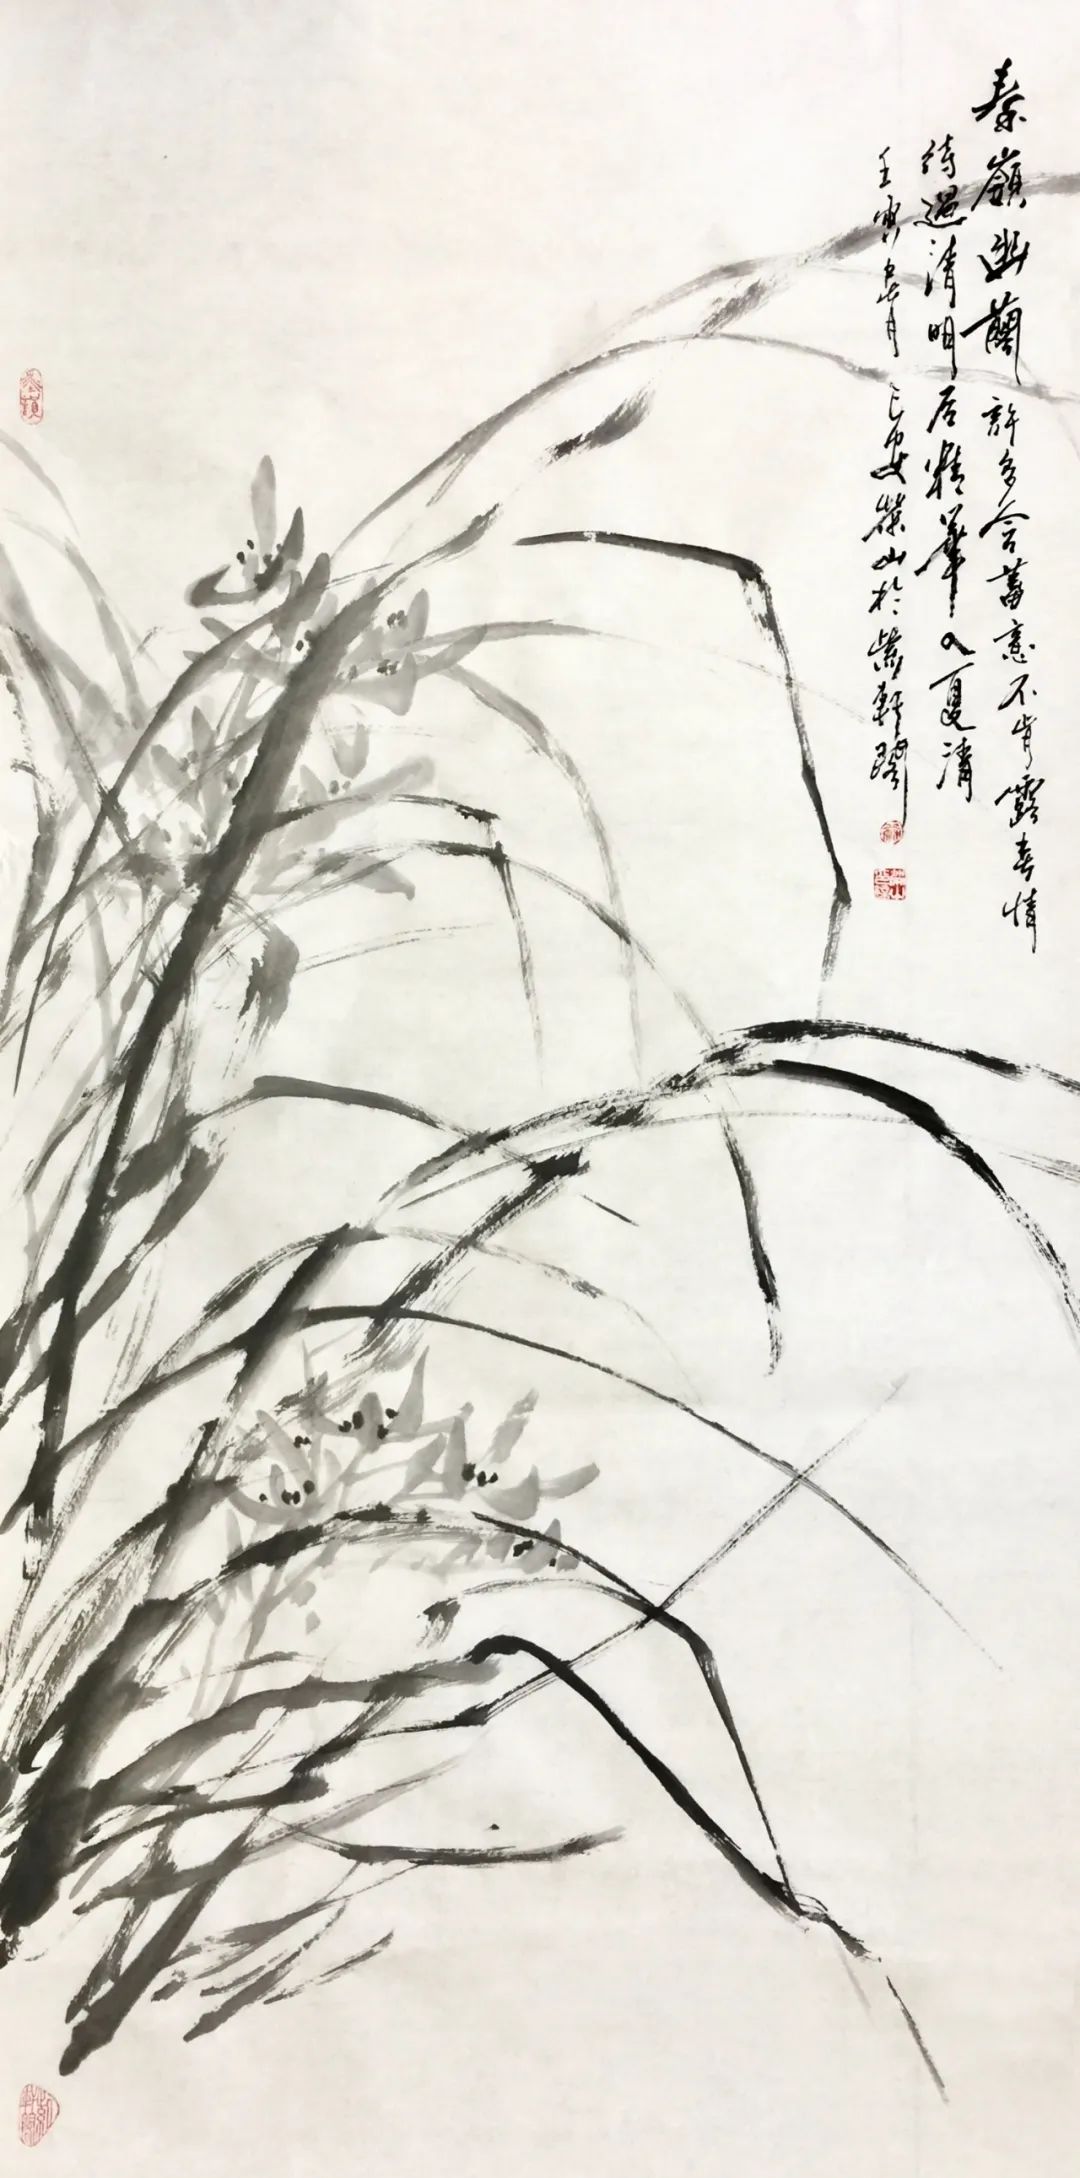 秦嶺幽蘭 許多含蓄意不肯露春情
待過清明后精華入夏清
壬寅 安 山於紫軒閣